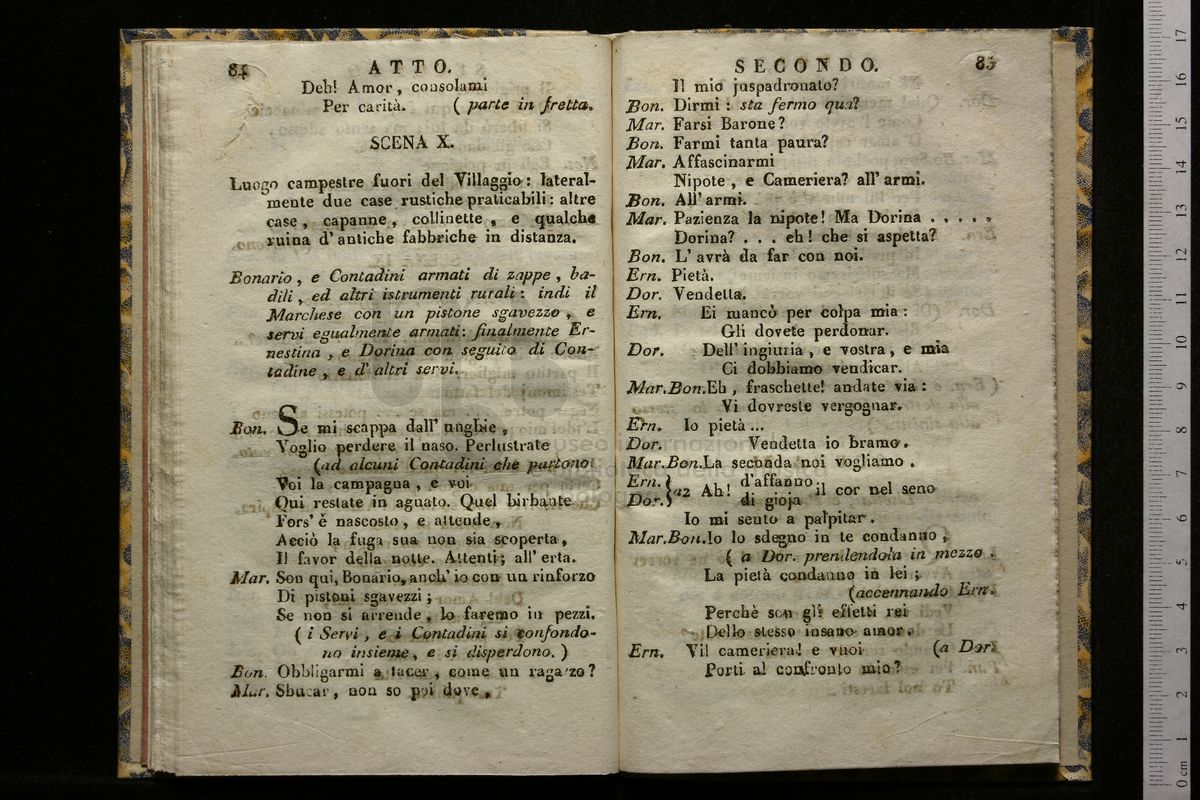 84
ATTO.
Deh! Amor, consolami
Per carità. ( parte in fretta.
SCENA X.
Luogo campestre fuori del Villaggio: lateral-
mente due case rustiche praticabili: altre
case, capanne, collinette, e qualche
ruina d'antiche fabbriche in distanza.
Bonario, e Contadini armati di zappe, ba-
dili, ed altri istrumenti rurali: indi il
Marchese con un pistone sgavezzo, e
servi egualmente armati: finalmente Er-
nestina, e Dorina con seguito di Con-
tadine, e d'altri servi.
Bon. Se mi scappa dall' unghie,
Voglio perdere il naso. Perlustrate
(ad alcuni Contadini che partono.
Voi la campagna, e voi
Qui restate in aguato. Quel birbante
Fors' è nascosto, e attende,
Acciò la fuga sua non sia scoperta,
Il favor della notte. Attenti; all' erta.
Mar. Son qui, Bonario, anch' io con un rinforzo
Di pistoni sgavezzi;
Se non si arrende, lo faremo in pezzi.
( i Servi, e i Contadini si confondo-
no insieme, e si disperdono. )
Bon. Obbligarmi a tacer, come un ragazzo?
Mar. Sbucar, non so poi dove,
SECONDO.
85
Il mio juspadronato?
Bon. Dirmi: sta fermo qua?
Mar. Farsi Barone?
Bon. Farmi tanta paura?
Mar. Affascinarmi
Nipote, e Cameriera? all' armi.
Bon. All' armi.
Mar. Pazienza la nipote! Ma Dorina . . . . .
Dorina? . . . eh! che si aspetta?
Bon. L' avrà da far con noi.
Ern. Pietà.
Dor. Vendetta.
Ern. Ei mancò per colpa mia:
Gli dovete perdonar.
Dor. Dell' ingiuria, e vostra, e mia
Ci dobbiamo vendicar.
Mar.Bon.Eh, fraschette! andate via:
Vi dovreste vergognar.
Ern. Io pietà ...
Dor. Vendetta io bramo.
Mar.Bon.La seconda noi vogliamo.
Ern. } a2 Ah! d'affanno il cor nel seno
Dor. } di gioja
Io mi sento a palpitar.
Mar.Bon.Io lo sdegno in te condanno,
( a Dor. prendendola in mezzo.
La pietà condanno in lei;
(accennando Ern.
Perchè son gli effetti rei
Dello stesso insano amor.
Ern. Vil cameriera! e vuoi (a Dor.
Porti al confronto mio?